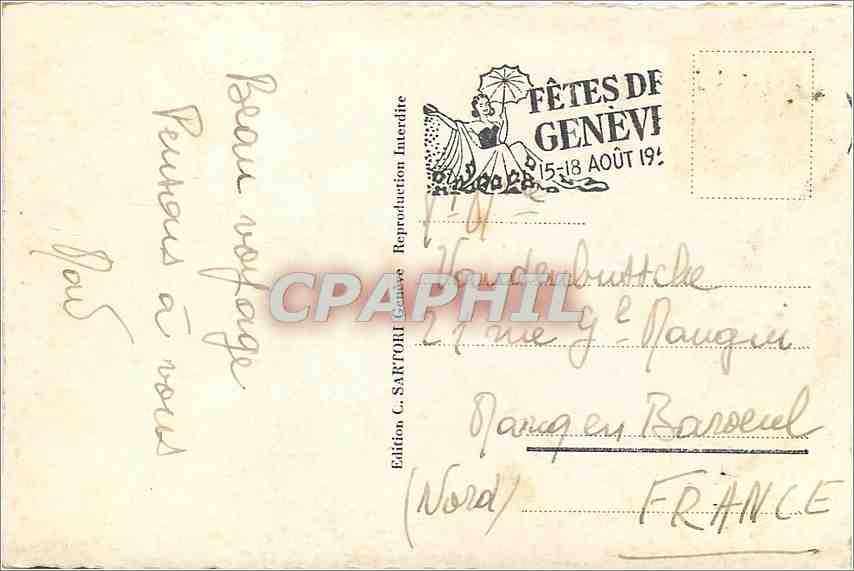 Beau voyage
Pensons à vous
Edition C. SARTORI Genève Reproduction Interdite
FÊTES DE
GENÈVE
15-18 AOÛT 195
Vandenbussche
21 rue Gl Mangin
Marcq en Baroeul
(Nord) FRANCE
CPAPHIL